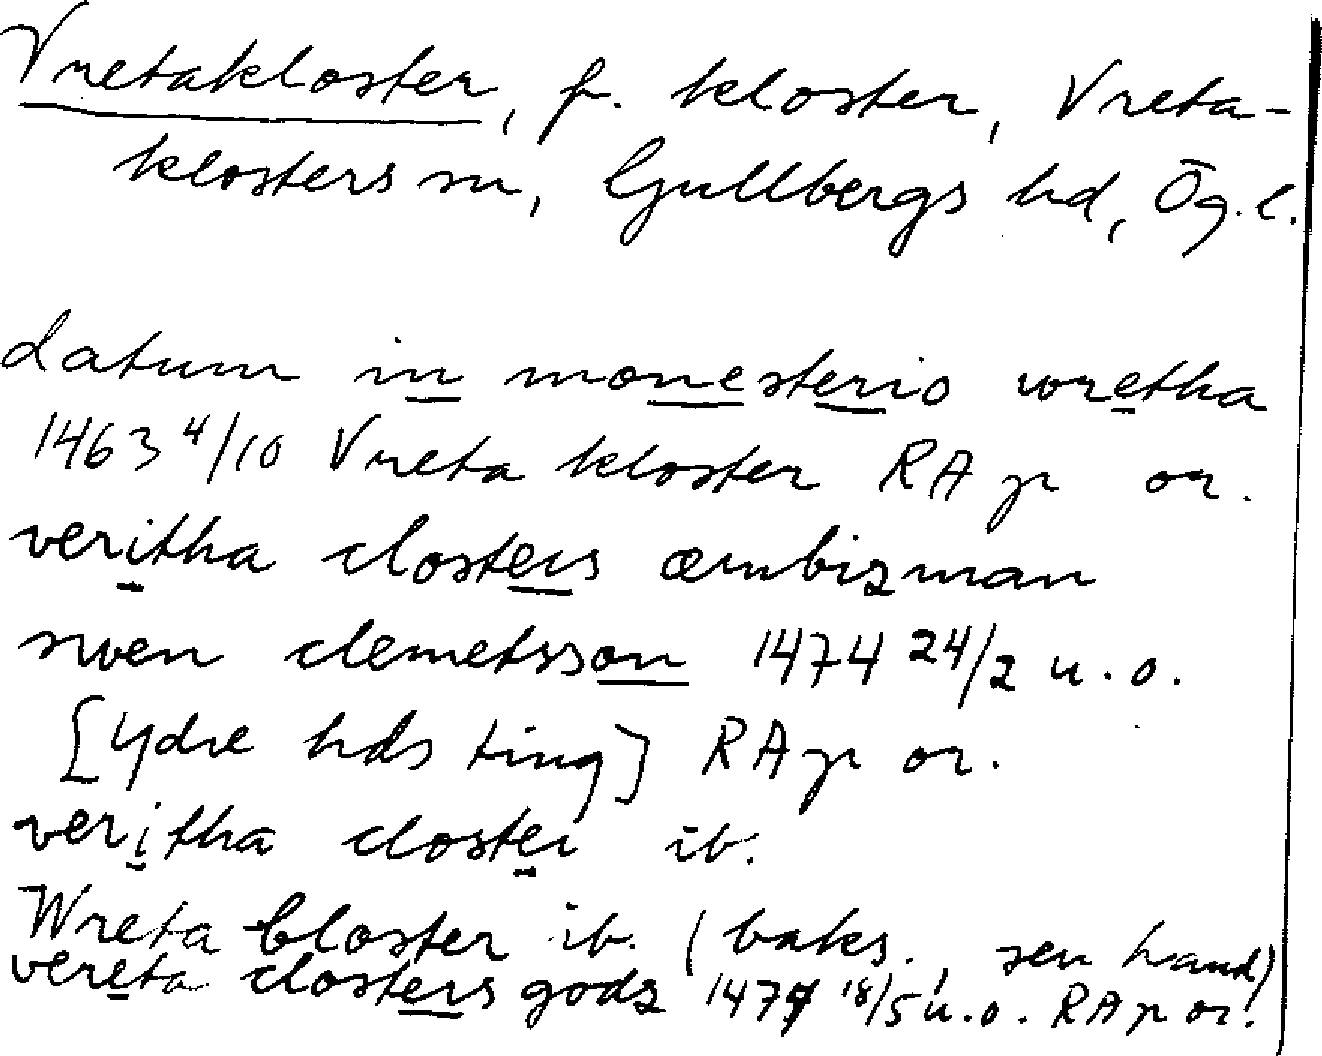 Vretakloster, f. kloster, Vreta-
klosters sn, Gullbergs hd, Ög.l.
datum in monesterio wretha
1463 4/10 Vreta kloster RAp or.
veritha closters æmbizman
swen clemetsson 1474 24/2 u.o.
[Ydre hds ting] RAp or.
veritha closter ib.
Wreta Closter ib. (baks., sen hand)
vereta closters godz 18/5 u.o. RAp or.